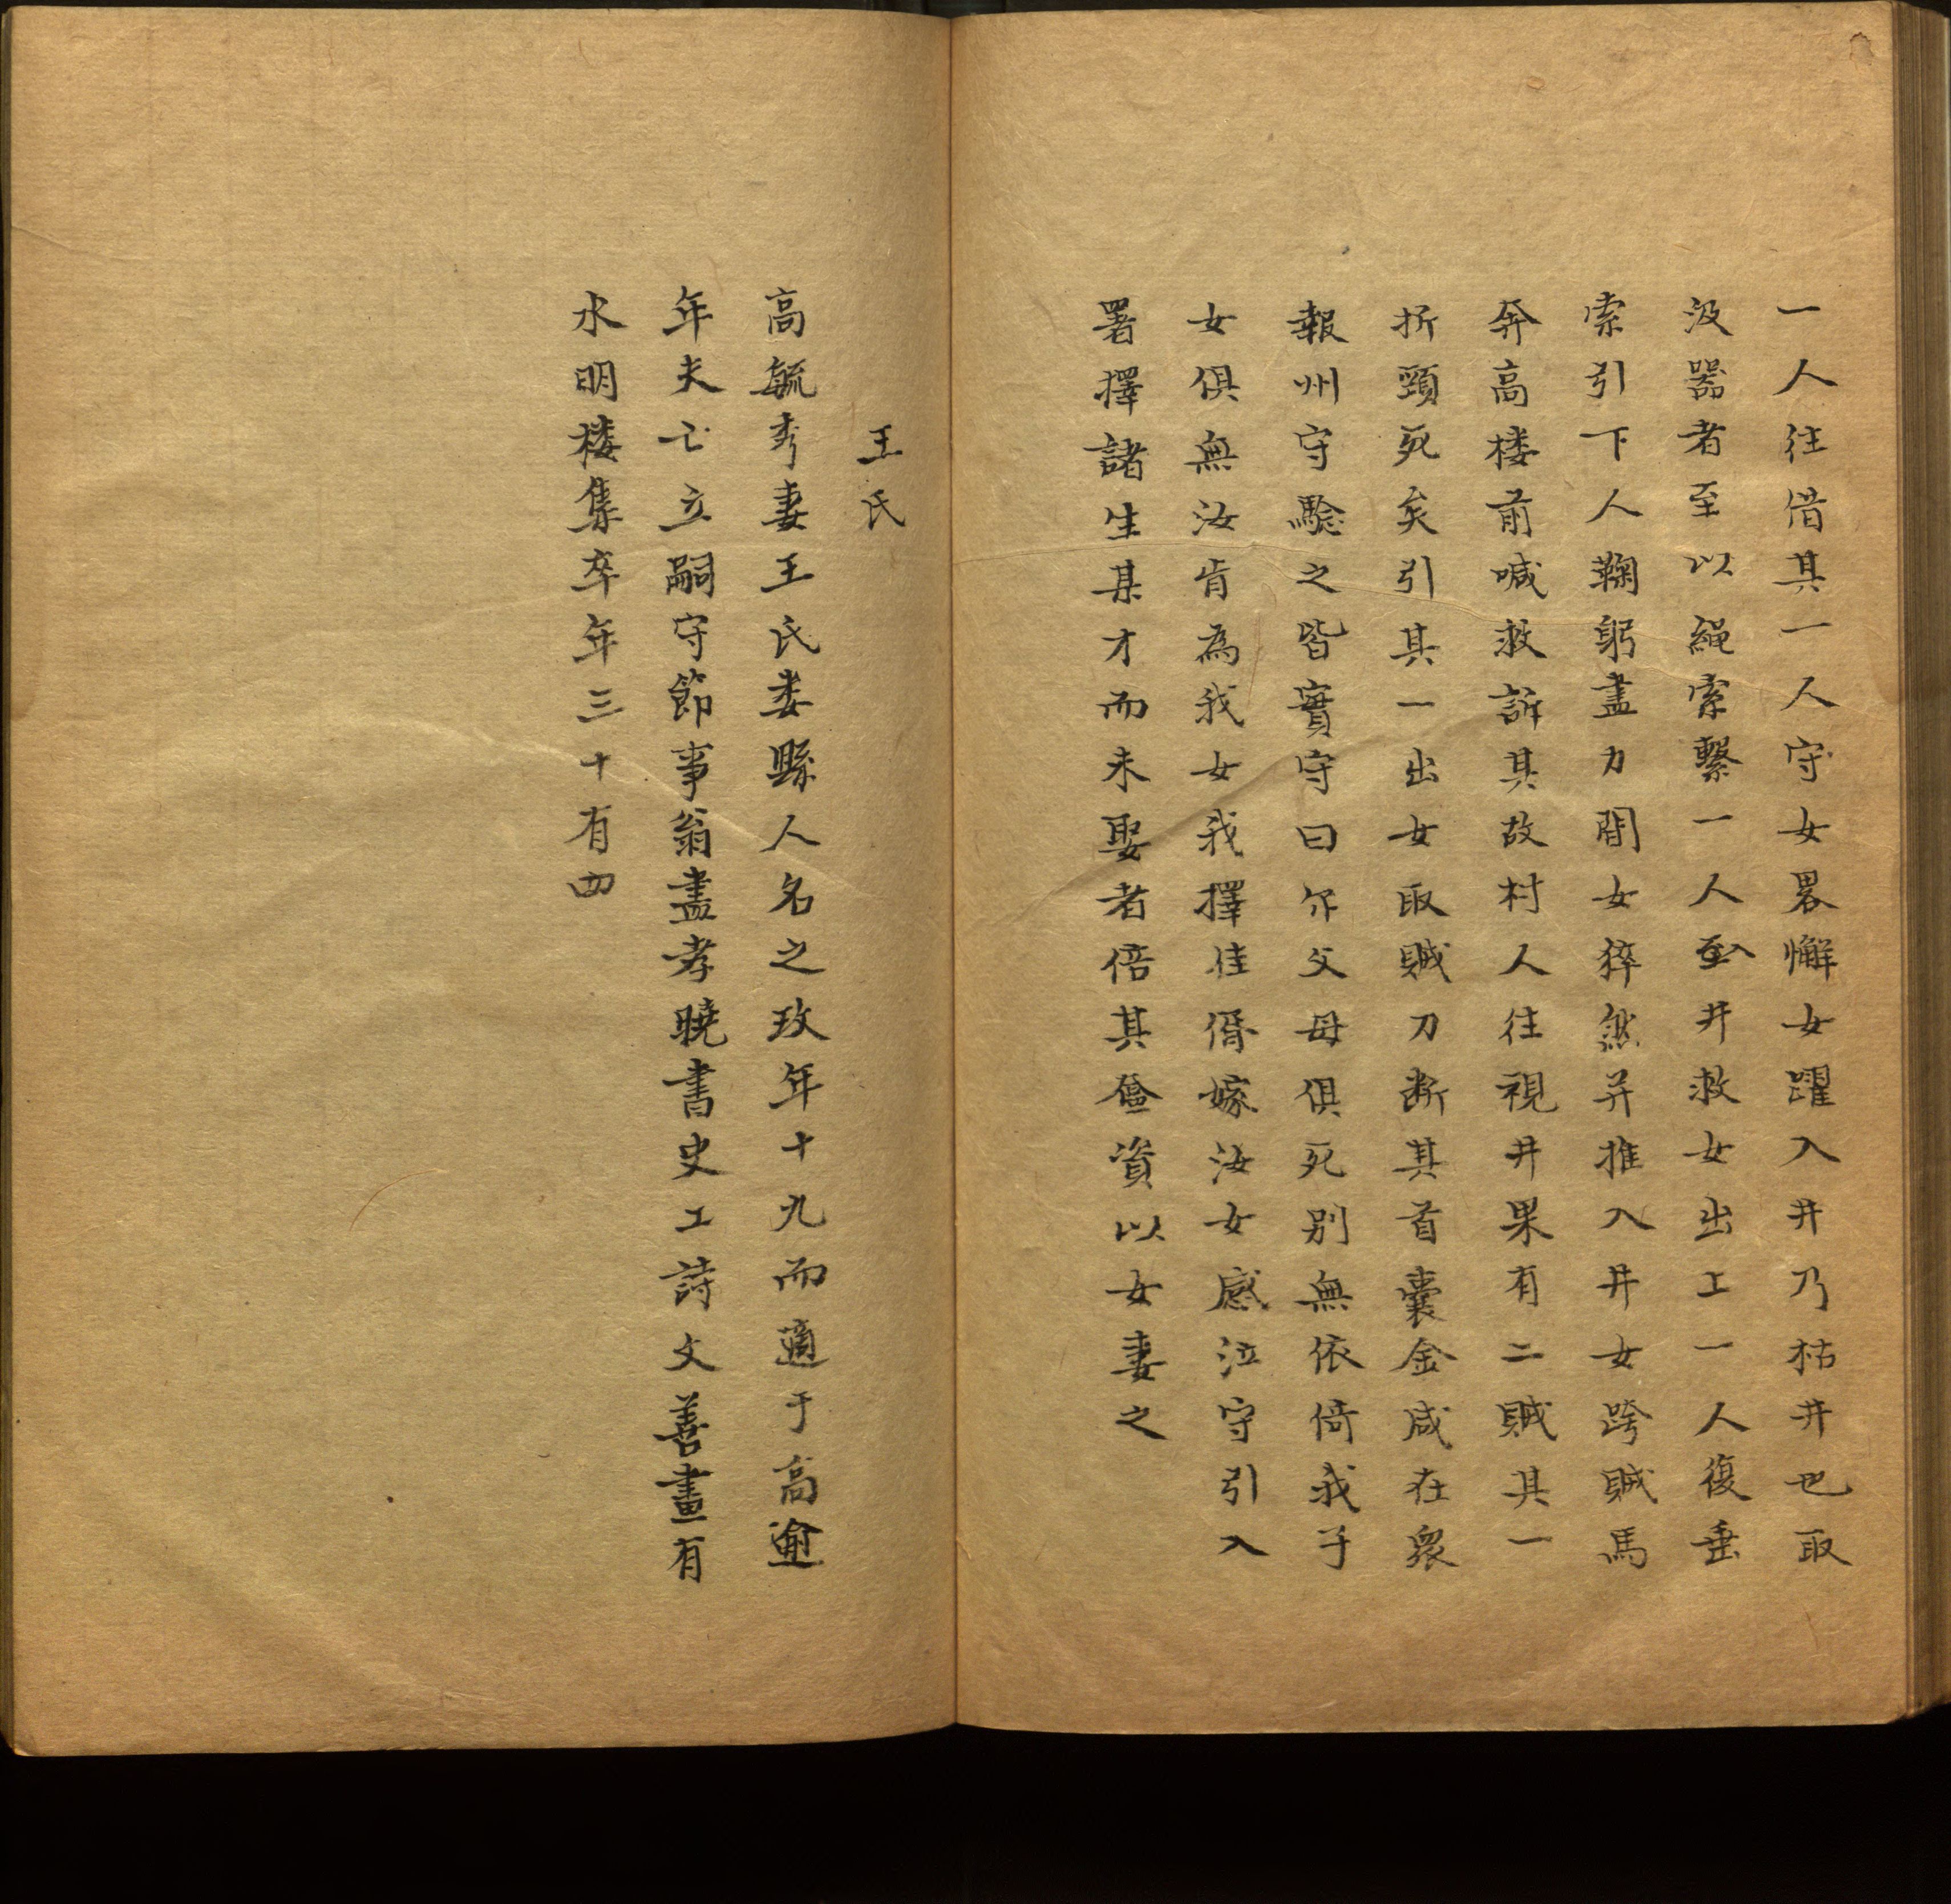 一人往借其一人守女畧懈女躍入井乃枯井也取
汲器者至以繩索繫一人至井救女出工一人復垂
索引下人鞠躬盡力間女猝然并推入井女跨賊馬
奔高楼前喊救訴其故村人往視井果有二賊其一
折頸死矣引其一出女取賊刀断其首囊金咸在衆
報州守驗之皆實守曰尔父母俱死別無依倚我子
女俱無汝肯為我女我擇佳偦嫁汝女感泣守引入
署擇諸生某才而未娶者倍其奩資以女妻之
王氏
高毓秀妻王氏婁縣人名之玫年十九而適于高逾
年夫亡立嗣守節事翁盡孝曉書史工詩文善畫有
水明楼集卒年三十有四